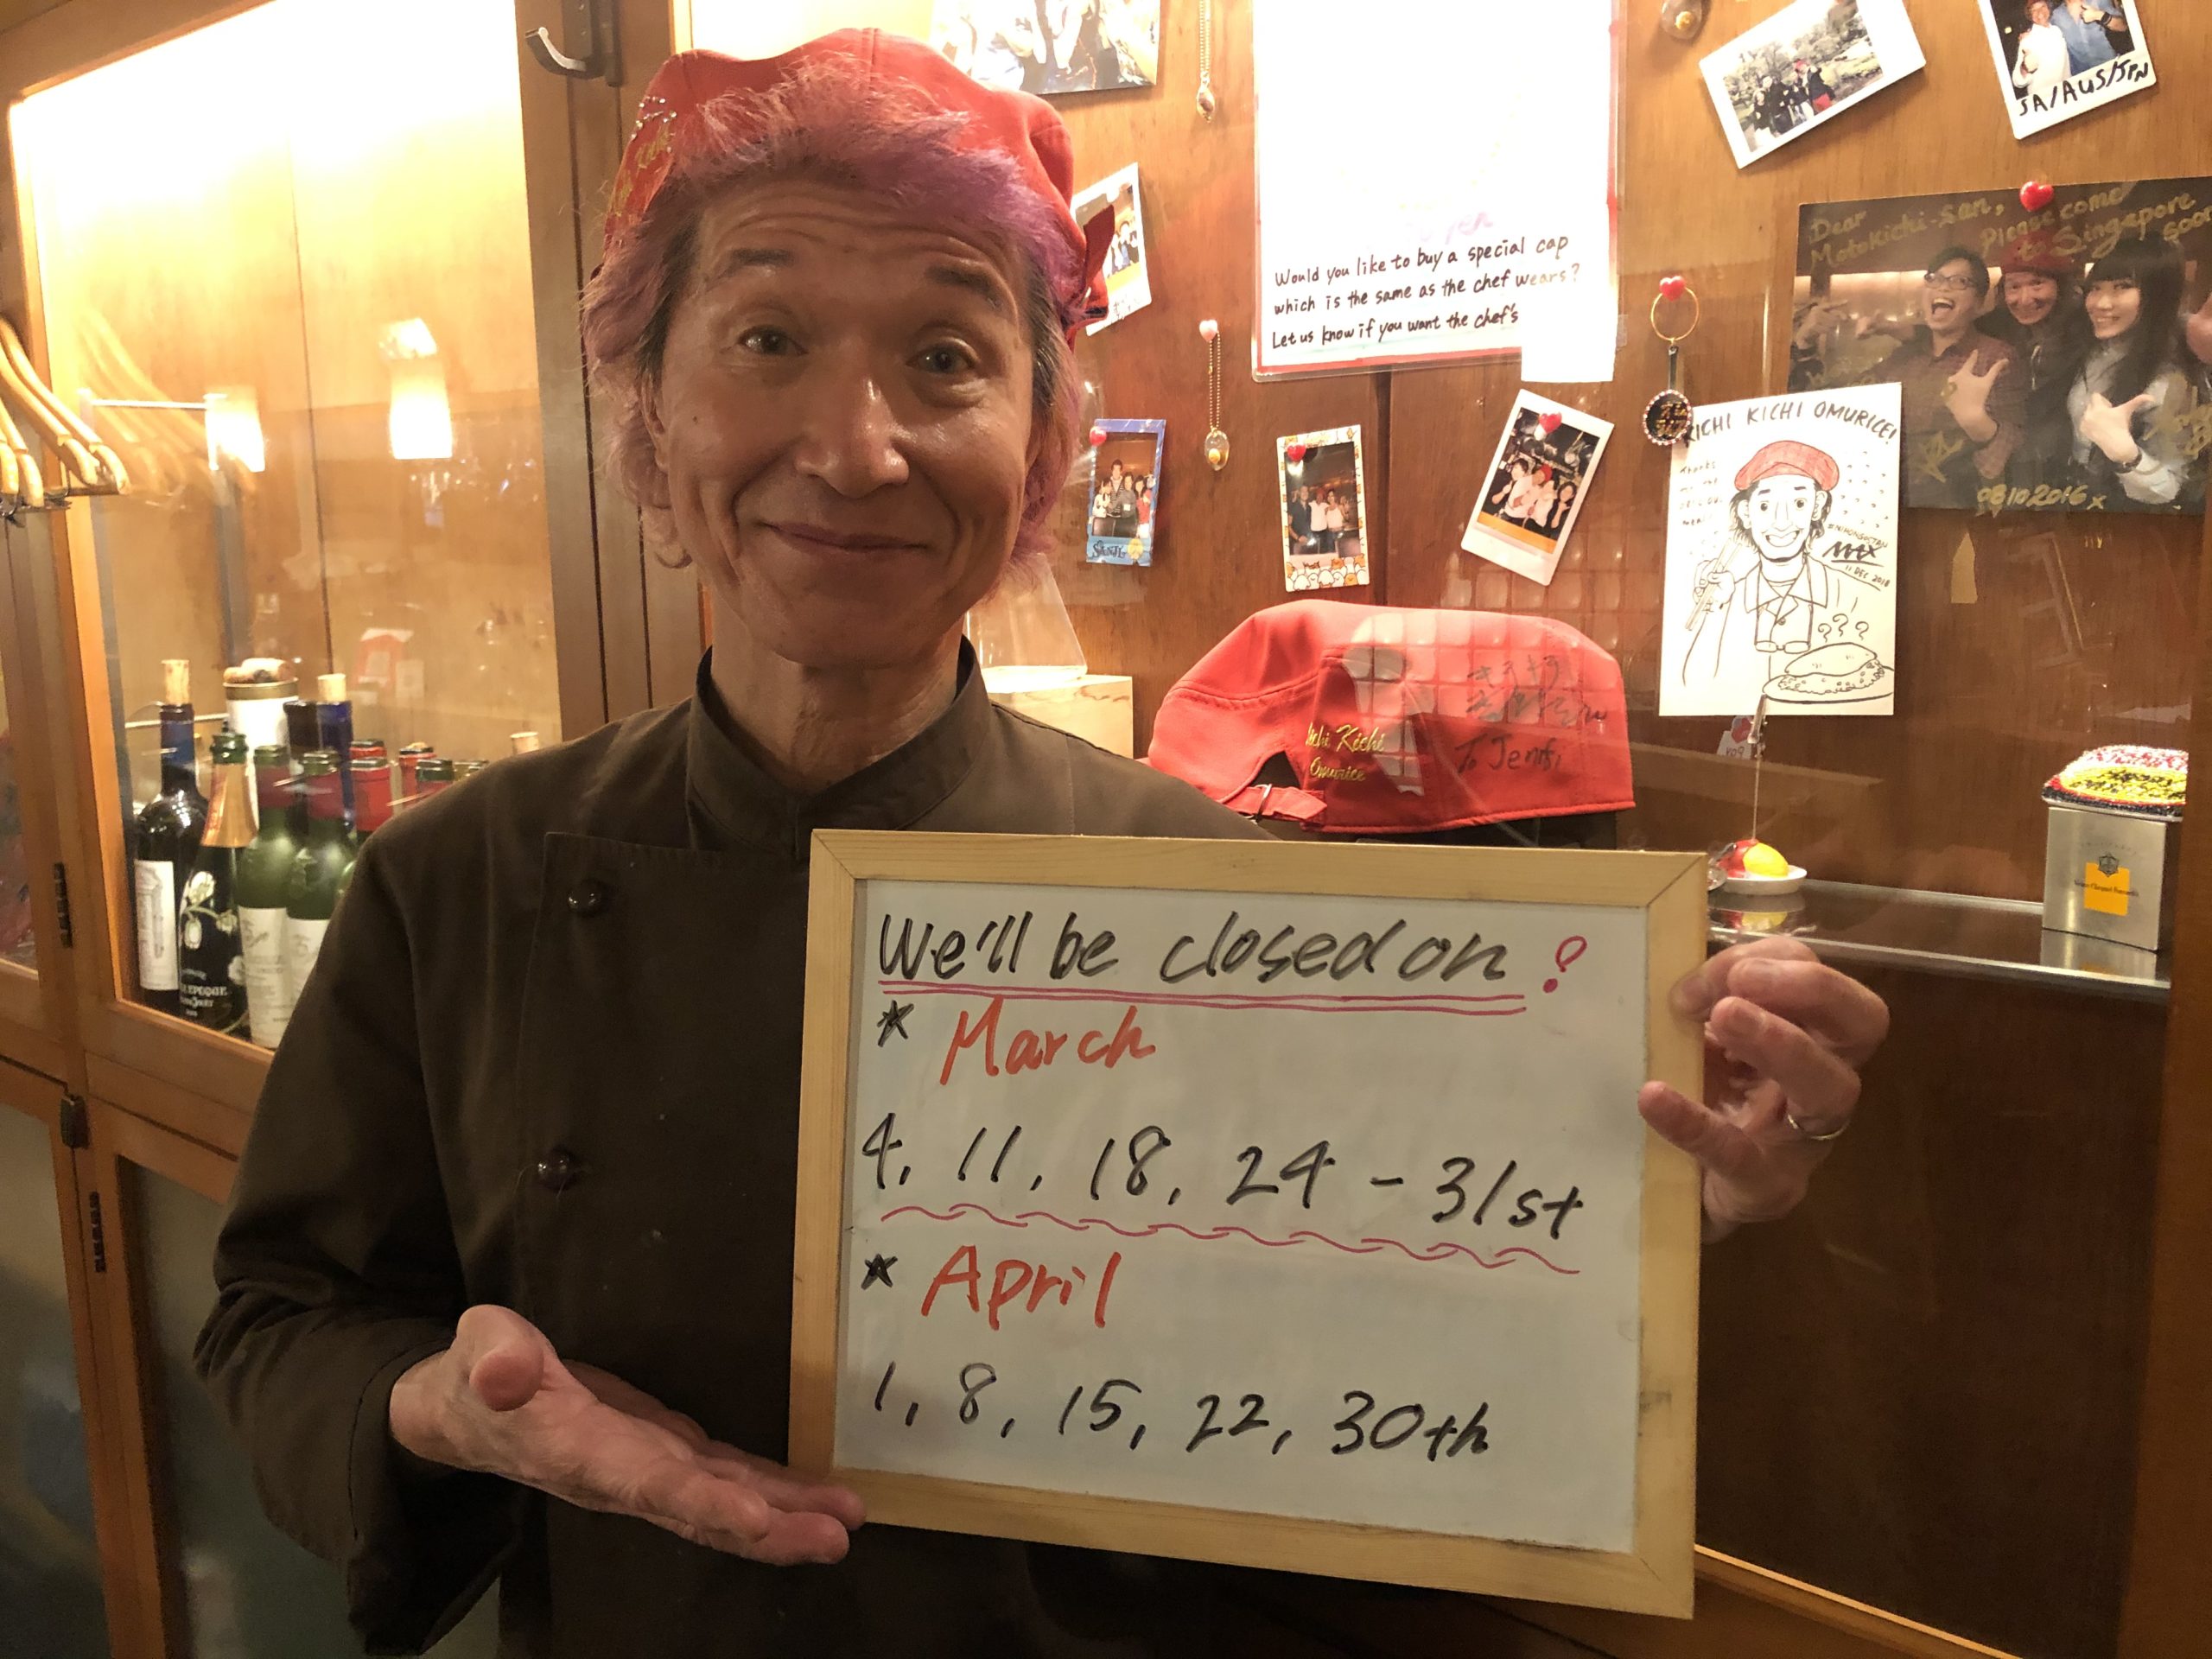 We'll be closed on !
* March
4, 11, 18, 24 - 31st
* April
1, 8, 15, 22, 30th
Would you like to buy a special cap
which is the same as the chef wears?
Let us know if you want the chef's
SA/AUS/JPN
Dear
Motokichi-san,
Please come
to Singapore
soon
08102016 x
KICHI KICHI OMURICE!
MAX
11 DEC 2018
Kichi Kichi
Omurice
To Jenifi
Kichi